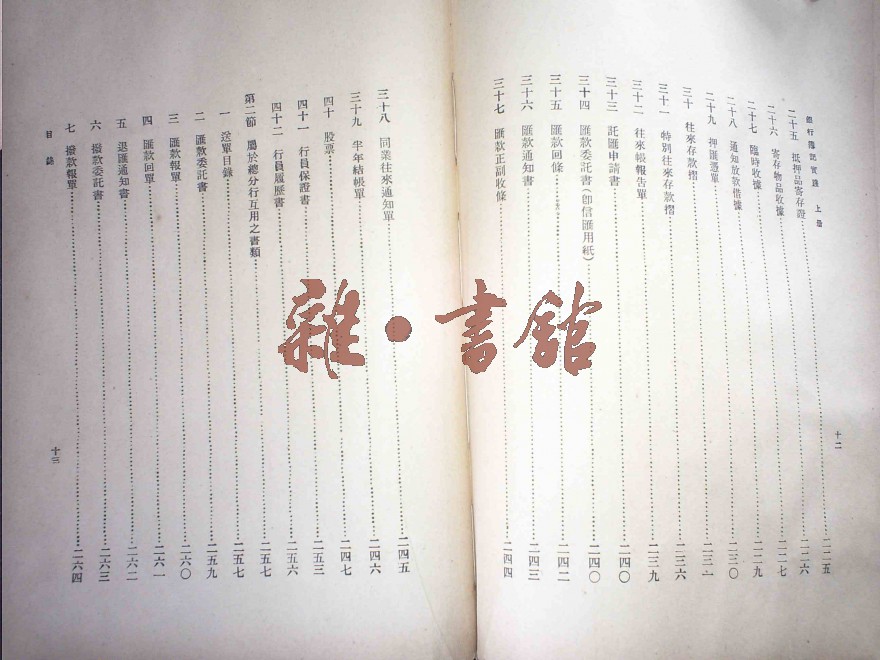 銀行簿記實踐 上册
二十五 抵押品寄存證 二二五
二十六 寄存物品收據 二二六
二十七 臨時收據 二二七
二十八 通知放款借據 二二九
二十九 押匯憑單 二三〇
三十 往來存款摺 二三一
三十一 特別往來存款摺 二三六
三十二 往來帳報告單 二三九
三十三 託匯申請書 二四〇
三十四 匯款委託書(卽信匯用紙) 二四〇
三十五 匯款回條 二四二
三十六 匯款通知書 二四三
三十七 匯款正副收條 二四四
十二
三十八 同業往來通知單 二四五
三十九 半年結帳單 二四六
四十 股票 二四七
四十一 行員保證書 二五三
四十二 行員履歷書 二五六
第二節 屬於總分行互用之書類 二五七
一 送單目錄 二五七
二 匯款委託書 二五九
三 匯款報單 二六〇
四 匯款回單 二六一
五 退匯通知書 二六二
六 撥款委託書 二六三
七 撥款報單 二六四
目錄
十三
雜·書館